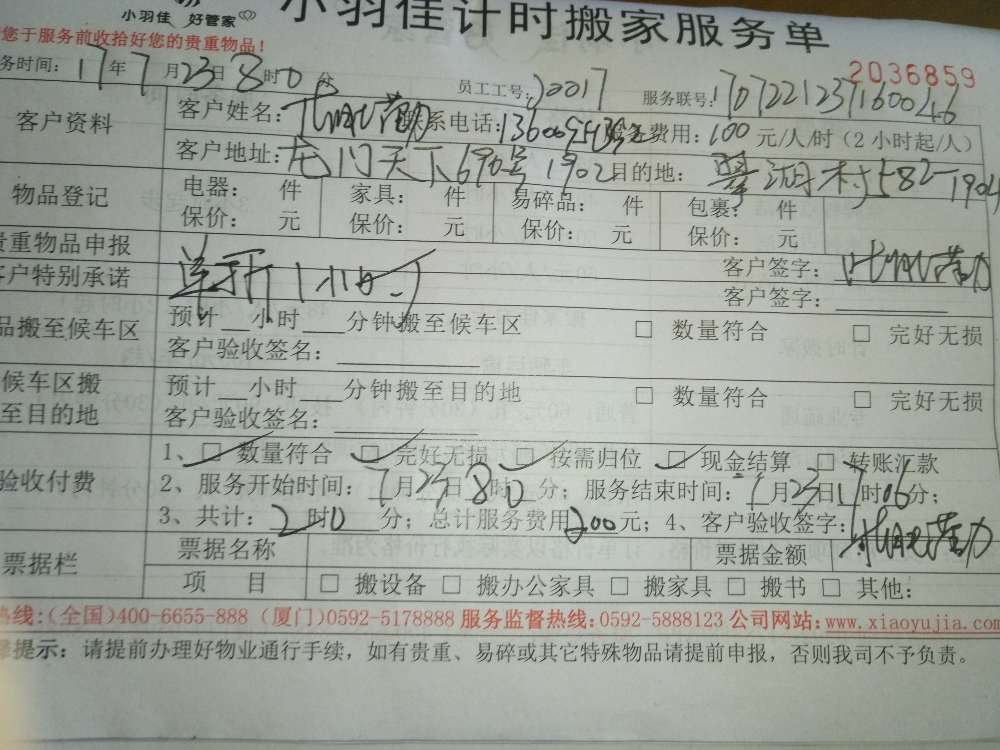 小羽佳 好管家
小羽佳计时搬家服务单
您于服务前收拾好您的贵重物品！
务时间：17年7月23日8时0分 员工工号：20017 服务联号：
2036859
客户资料 客户姓名： 联系电话： 费用：100元/人/时（2小时起/人）
客户地址：龙门天下690号1902 目的地：村582-1904
物品登记 电器： 件 家具： 件 易碎品： 件 包裹： 件
保价： 元 保价： 元 保价： 元 保价： 元
贵重物品申报 客户签字：
客户特别承诺 客户签字：
品搬至候车区 预计__小时___分钟搬至候车区 □ 数量符合 □ 完好无损
客户验收签名：
候车区搬至目的地 预计__小时___分钟搬至目的地 □ 数量符合 □ 完好无损
客户验收签名：
验收付费 1、□ 数量符合 □ 完好无损 □ 按需归位 □ 现金结算 □ 转账汇款
2、服务开始时间：7月23日8时0分；服务结束时间：7月23日17时06分；
3、共计：2时0分；总计服务费用200元；4、客户验收签字：
票据栏 票据名称 票据金额
项 目 □ 搬设备 □ 搬办公家具 □ 搬家具 □ 搬书 □ 其他：
热线:(全国)400-6655-888 (厦门)0592-5178888 服务监督热线:0592-5888123 公司网站:www.xiaoyujia.com
提示：请提前办理好物业通行手续，如有贵重、易碎或其它特殊物品请提前申报，否则我司不予负责。